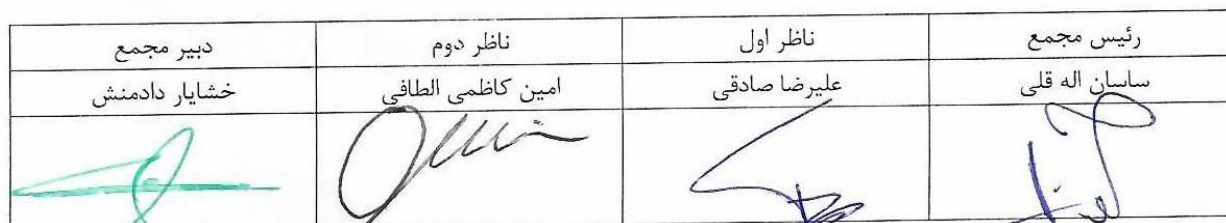 رئیس مجمع ناظر اول ناظر دوم دبیر مجمع
ساسان اله قلی علیرضا صادقی امین کاظمی الطافی خشایار دادمنش